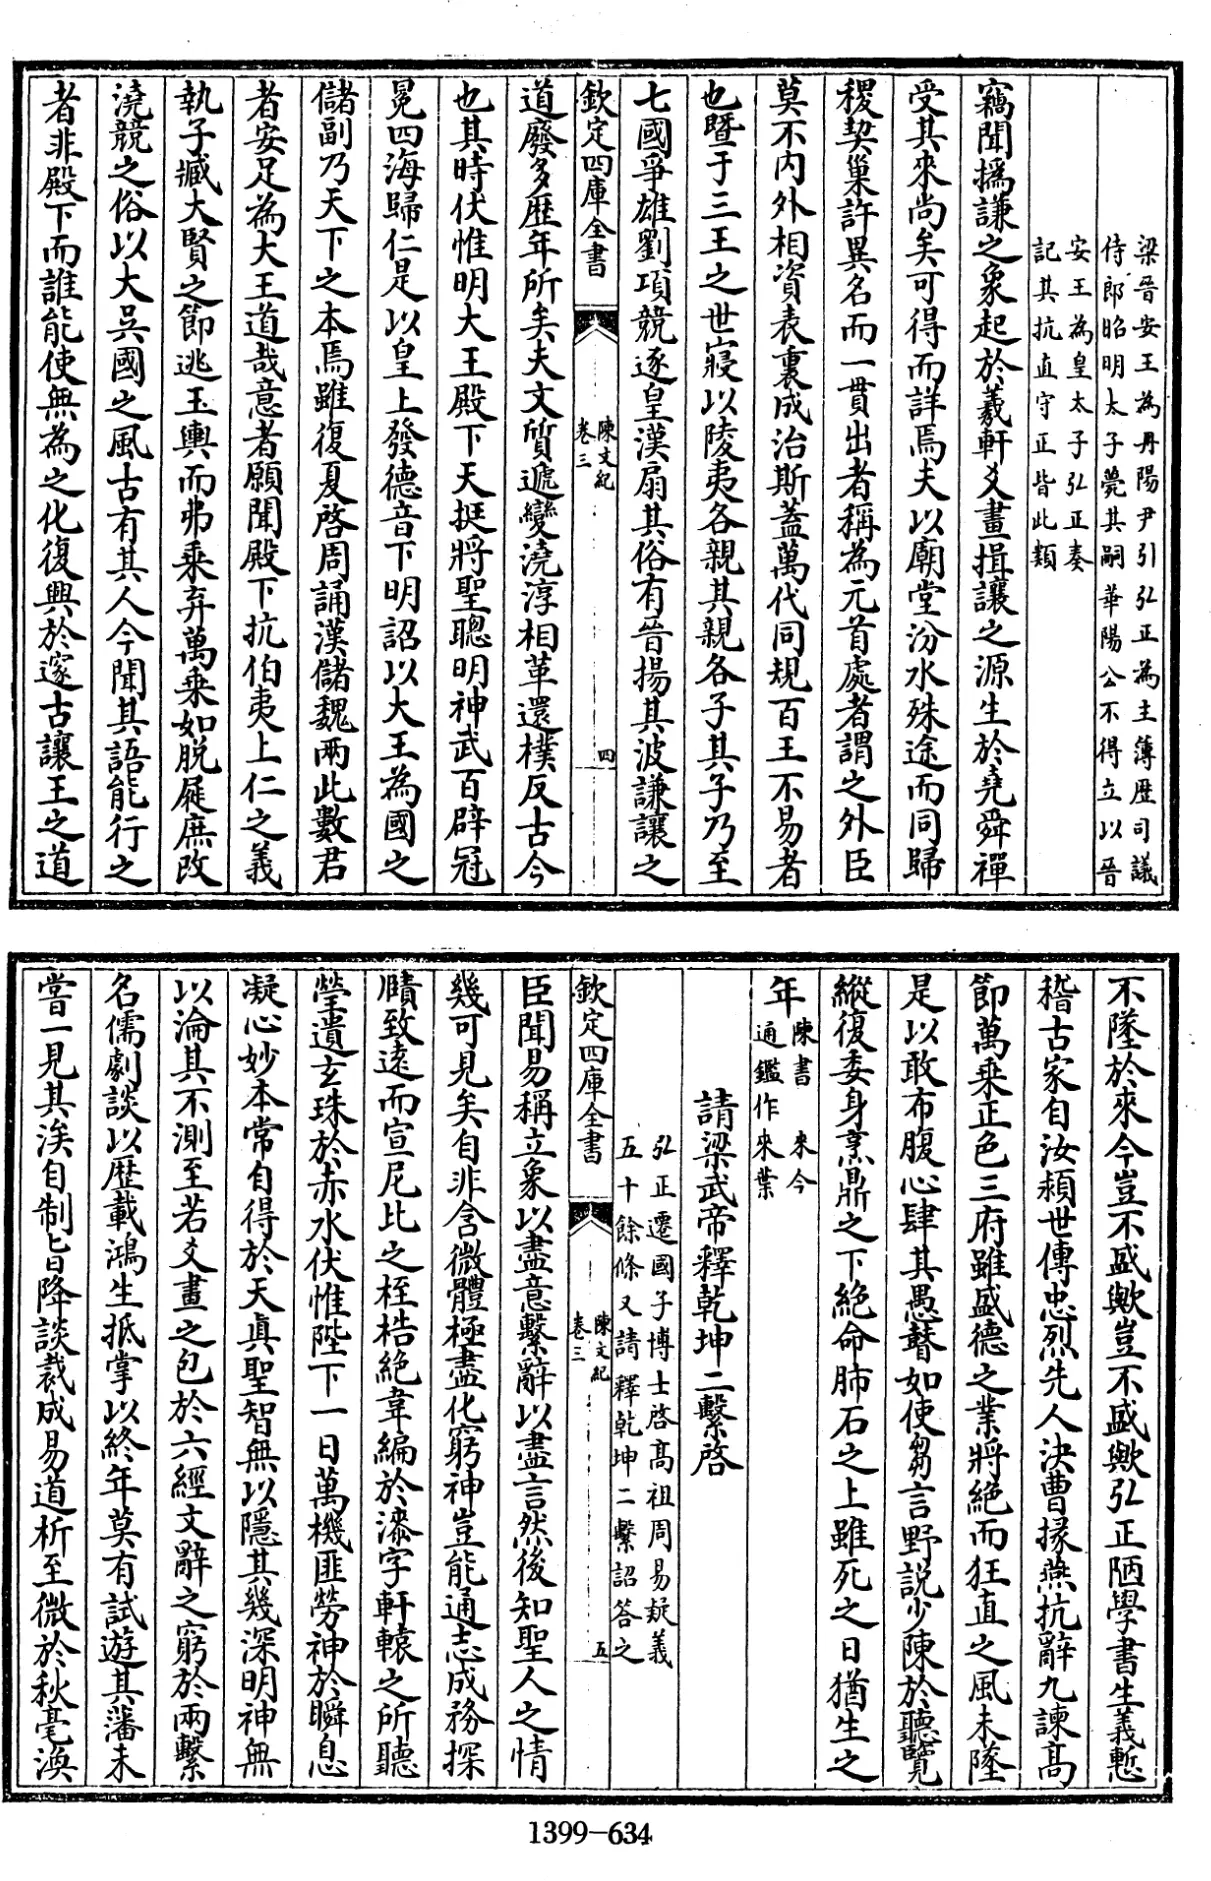 梁晉安王為丹陽尹引弘正為主簿歴司議
侍郎昭明太子薨其嗣華陽公不得立以晉
安王為皇太子弘正奏
記其抗直守正皆此類
竊聞撝謙之象起於羲軒爻畫揖讓之源生於堯舜禪
受其來尚矣可得而詳焉夫以廟堂汾水殊途而同歸
稷契巢許異名而一貫出者稱為元首處者謂之外臣
莫不内外相資表裏成治斯蓋萬代同規百王不易者
也暨于三王之世寖以陵夷各親其親各子其子乃至
七國爭雄劉項競逐皇漢扇其俗有晉揚其波謙讓之
欽定四庫全書
陳文紀
卷三
四
道廢多歴年所矣夫文質遞變澆淳相革還樸反古今
也其時伏惟明大王殿下天挺將聖聰明神武百辟冠
冕四海歸仁是以皇上發德音下明詔以大王為國之
儲副乃天下之本焉雖復夏啓周誦漢儲魏兩此數君
者安足為大王道哉意者願聞殿下抗伯夷上仁之義
執子臧大賢之節逃玉輿而弗乘弃萬乘如脱屣庶改
澆競之俗以大吳國之風古有其人今聞其語能行之
者非殿下而誰能使無為之化復興於邃古讓王之道
不墜於來今豈不盛歟豈不盛歟弘正陋學書生義慙
稽古家自汝潁世傳忠烈先人決曹掾燕抗辭九諫高
節萬乘正色三府雖盛德之業將絶而狂直之風未墜
是以敢布腹心肆其愚瞽如使芻言野説少陳於聽覽
縱復委身烹鼎之下絶命肺石之上雖死之日猶生之
年
陳書 來今
通鑑作來葉
請梁武帝釋乾坤二繫啓
弘正遷國子博士啓高祖周易疑義
五十餘條又請釋乾坤二繫詔答之
欽定四庫全書
陳文紀
卷三
五
臣聞易稱立象以盡意繫辭以盡言然後知聖人之情
幾可見矣自非含微體極盡化窮神豈能通志成務探
賾致遠而宣尼比之桎梏絶韋編於漆字軒轅之所聽
瑩遺玄珠於赤水伏惟陛下一日萬機匪勞神於瞬息
凝心妙本常自得於天真聖智無以隱其幾深明神無
以淪其不測至若爻畫之包於六經文辭之窮於兩繫
名儒劇談以歴載鴻生抵掌以終年莫有試遊其藩未
嘗一見其涘自制旨降談裁成易道析至微於秋毫渙
1399-634